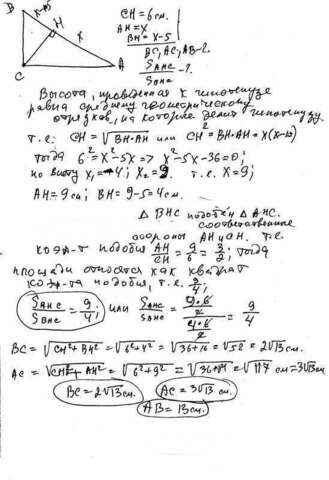 B
x-5
H
x
C
A
CH = 6см.
AH = x
BH = x-5
BC, AC, AB - ?
S_AHC / S_BHC - ?
Высота, проведенная к гипотенузе
равна среднему геометрическому
отрезков, на которые делит гипотенузу.
т.е. CH = √BH·AH или CH² = BH·AH = x(x-5)
тогда 6² = x² - 5x => x² - 5x - 36 = 0;
по Виету x₁ = -4; x₂ = 9. т.е. x = 9;
AH = 9см; BH = 9-5 = 4см.
△ BHC подобен △ AHC.
соответственные
стороны AH и CH. т.е.
коэф-т подобия AH/CH = 9/6 = 3/2; тогда
площади относятся как квадрат
коэф-та подобия, т.е. 9/4;
S_AHC / S_BHC = 9/4; или S_AHC / S_BHC = (9·6/2) / (4·6/2) = 9/4
BC = √CH² + BH² = √6²+4² = √36+16 = √52 = 2√13 см.
AC = √CH² + AH² = √6²+9² = √36+81 = √117 см = 3√13 см
BC = 2√13 см. AC = 3√13 см.
AB = 13см.